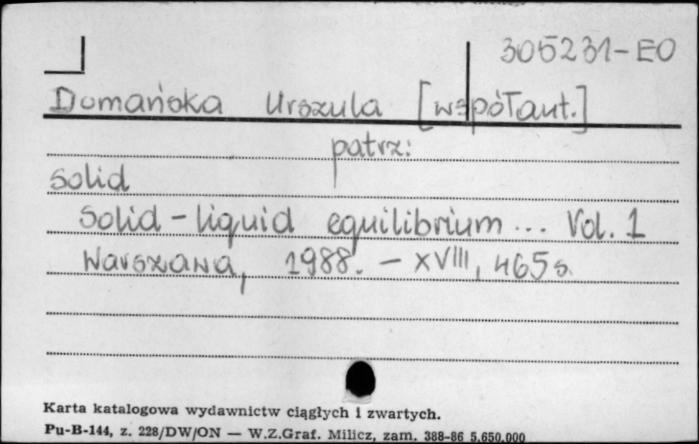 305231-EO
Domańska Urszula [współaut.]
patrz:
Solid
Solid-liquid equilibrium ... Vol. 1
Warszawa, 1988. - XVIII, 465 s.
Karta katalogowa wydawnictw ciągłych i zwartych.
Pu-B-144, z. 228/DW/ON — W.Z.Graf. Milicz, zam. 388-86 5.650.000